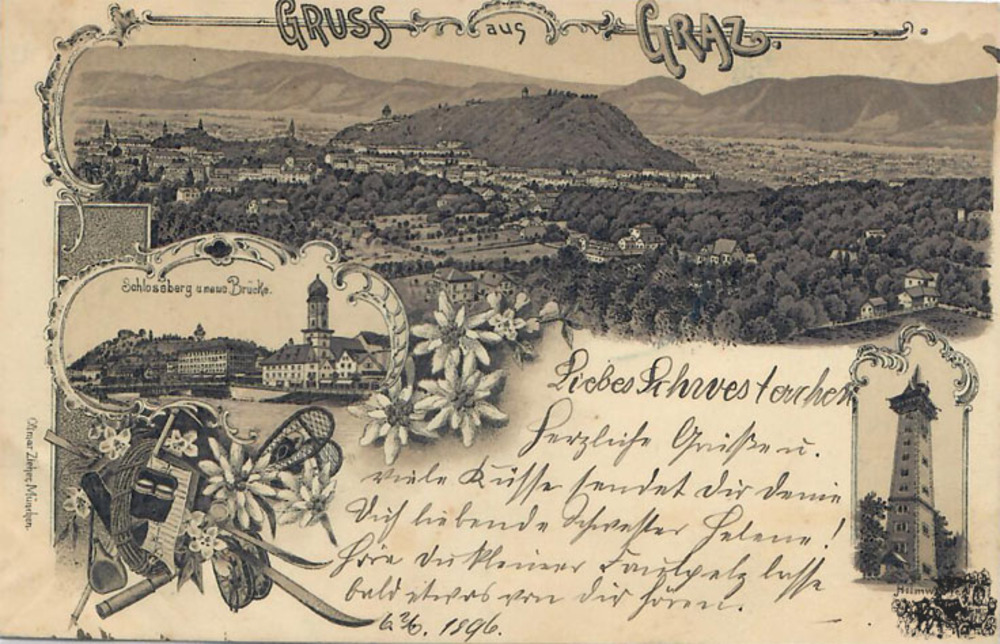 GRUSS aus GRAZ.
Schlossberg u. neue Brücke.
Ottmar Zieher, München.
Liebes Schwesterchen
Herzliche Grüße u.
viele Küsse sendet Dir deine
Dich liebende Schwester Helene!
Höre Du kleiner Faulpelz lasse
bald etwas von Dir hören.
1896.